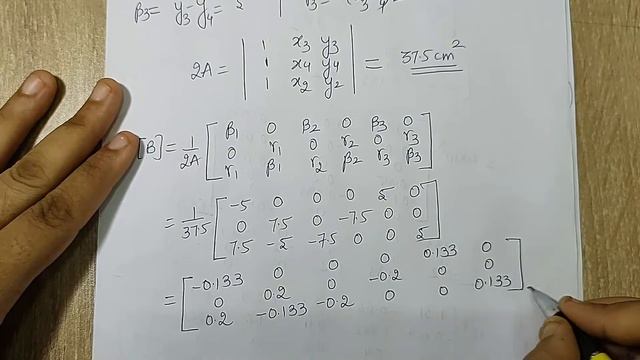 β3 = y3 - y4 = 5
2A = | 1 x3 y3 |
| 1 x4 y4 | = 37.5 cm²
| 1 x2 y2 |
[B] = 1/2A [ β1 0 β2 0 β3 0
0 r1 0 r2 0 r3
r1 β1 r2 β2 r3 β3 ]
= 1/37.5 [ -5 0 0 0 5 0
0 7.5 0 -7.5 0 0
7.5 -5 -7.5 0 0 5 ]
= [ -0.133 0 0 0 0.133 0
0 0.2 0 -0.2 0 0
0.2 -0.133 -0.2 0 0 0.133 ]